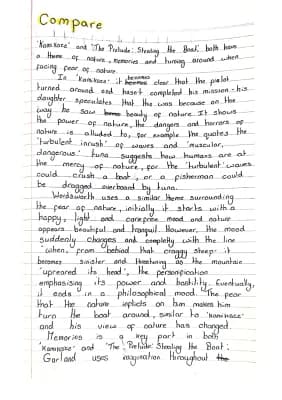 Compare
'Kamikaze' and 'The Prelude: Stealing the Boat' both have
a theme of nature, memories and turning around when
facing fear of nature.
In 'Kamikaze' it becomes clear that the pielot
turned around and hasn't completed his mission - his
daughter speculates that this was because on the
way he saw beauty of nature. It shows
the power of nature, the dangers and horrors of
nature is alluded to, for example the quotes the
'turbulent inrush' of waves and 'muscular,
dangerous' tuna suggests how humans are at
the mercy of nature, for the 'turbulent' waves
could crush a boat, or a fisherman could
be dragged overboard by tuna.
Wordsworth uses a similar theme surrounding
the fear of nature, initially it starts with a
happy, light and carefree mood and nature
appears beautiful and tranquil. However, the mood
suddenly changes and completly with the line
'when, from behind that craggy steep' it
becomes sinister and threatning as the mountain
'upreared its head', the personification
emphasising its power and hostility. Eventually,
it ends in a philosophical mood. The fear
that the nature inflicts on him makes him
turn the boat around, similar to 'Kamikaze'
and his view of nature has changed.
Memories is a key part in both
'Kamikaze' and 'The Prelude: Stealing the Boat':
Garland uses imagination throughout the